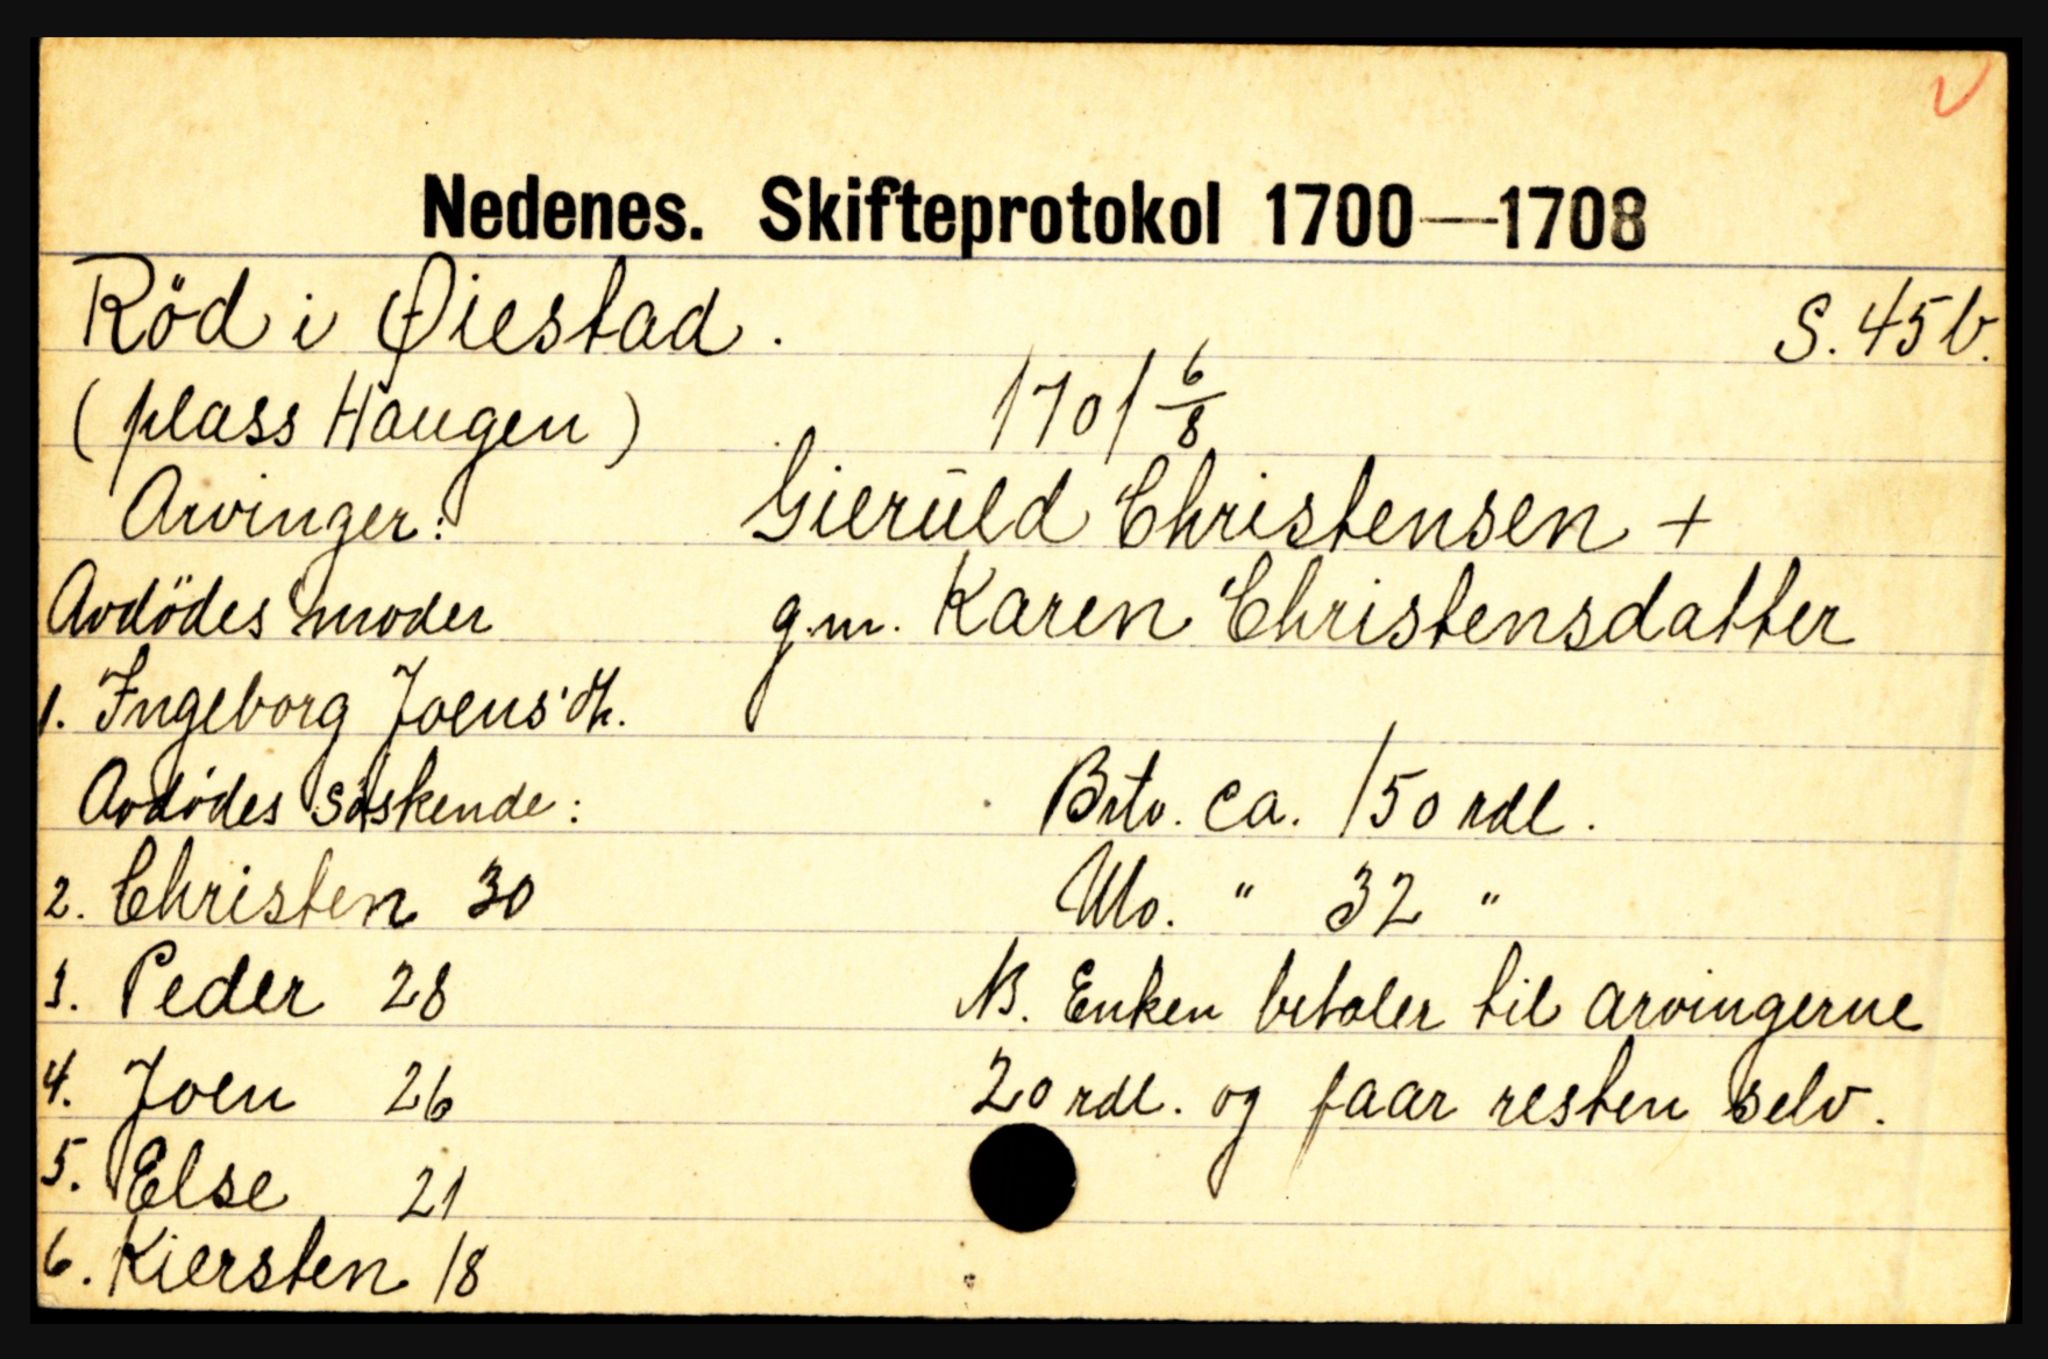 Nedenes. Skifteprotokol 1700—1708
Röd i Øiestad. S. 45b.
(plass Haugen) 1701 6/8
Arvinger: Gierŭld Christensen +
Avdödes moder g.m. Karen Christensdatter
1. Ingeborg Joens dtr.
Avdödes söskende: Brto. ca. 150 rdl.
2. Christen 30 Nto. " 32 "
3. Peder 28 NB. Enken betaler til arvingerne
4. Joen 26 20 rdl. og faar resten selv.
5. Else 21
6. Kiersten 18